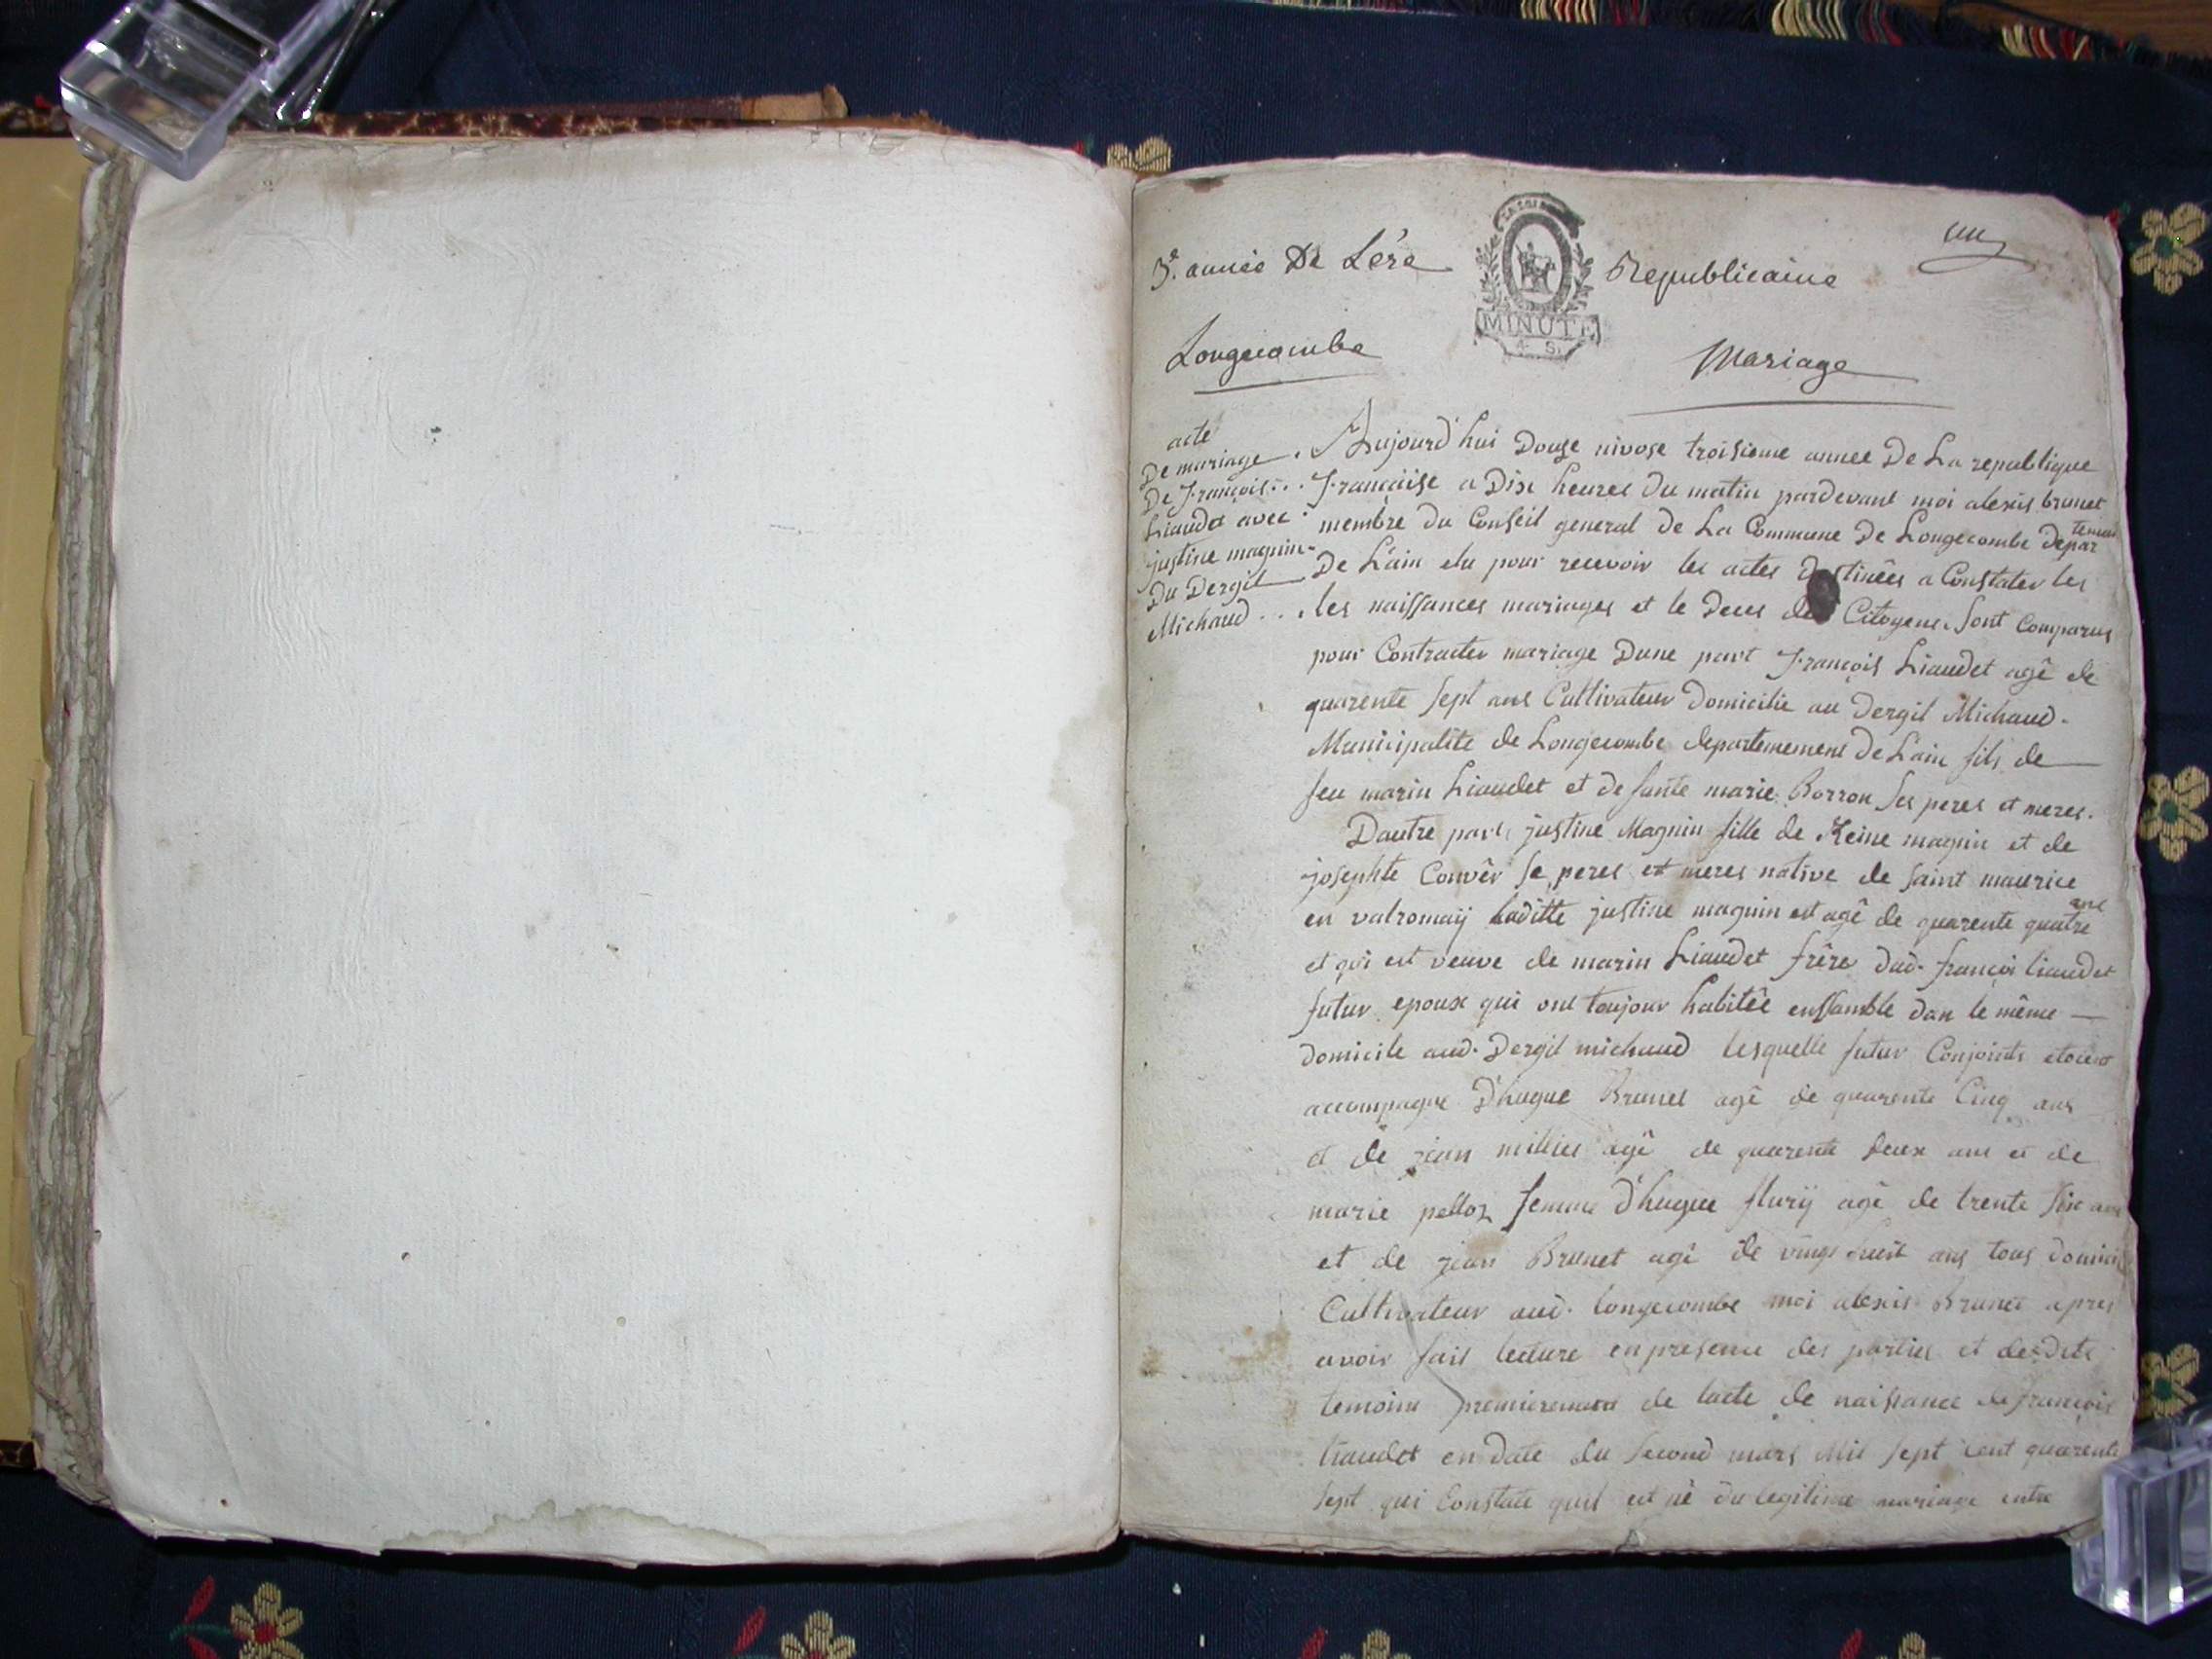 un
3e. année De L'ére Republicaine
MINUTE
4 S.
Longecombe Mariage
acte
De mariage
De François
Liaudet avec
justine magnin
Du Dergit
Michaud
Aujourd'hui Douze nivose troisieme annee De La republique
Francaise a Dix heures Du matin pardevant moi alexis brunet
membre du Conseil general de La Commune De Longecombe depar tement
De L'ain elu pour recevoir les actes destinées a Constater les
les naissances mariages et le Deces des Citoyens. sont Comparus
pour Contracter mariage Dune part François Liaudet agê de
quarente sept ans Cultivateur Domicilie au Dergit Michaud.
Municipalite de Longecombe departemement De Lain fils de
feu marin Liaudet et de fante marie Borron ses peres et meres.
Dautre part justine Magnin fille de Reine magnin et de
josephte Convêr se peres et meres native de saint maurice
en valromaÿ laditte justine magnin est agê de quarente quatre ans
et qui est veuve de marin Liaudet frère dud. françoi liaudet
futur epoux qui ont toujour habitêe enssamble dan le même
domicile aud. Dergit michaud lesquelle futur Conjoints etoient
accompagne D'hugue Brunet agê de quarente Cinq ans
et de jean millier agê de quarente deux ans et de
marie pelloz femme d'hugue flurÿ agê de trente six ans
et de jean Brunet agê de vingt huit ans tous
Cultivateur aud. longecombe moi alexis Brunet apres
avoir fait lecture en presence des parties et desdits
temoins premierement de lacte de naissance de françois
liaudet en date du second mars Mil sept cent quarente
sept qui Constate quil est né du legitime mariage entre